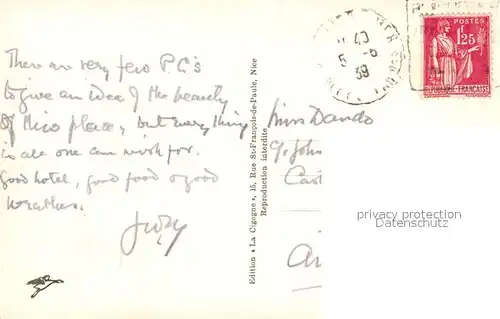 There are very few P.C's
to give an idea of the beauty
of this place, but everything
is all one can wish for.
Good hotel, good food & good
weather.
Judy
Edition « La Cigogne », 15, Rue St-François-de-Paule, Nice
Reproduction interdite
40
5 -5
39
POSTES
1F25
FRANÇAISE
Miss Dando
c/o John
privacy protection